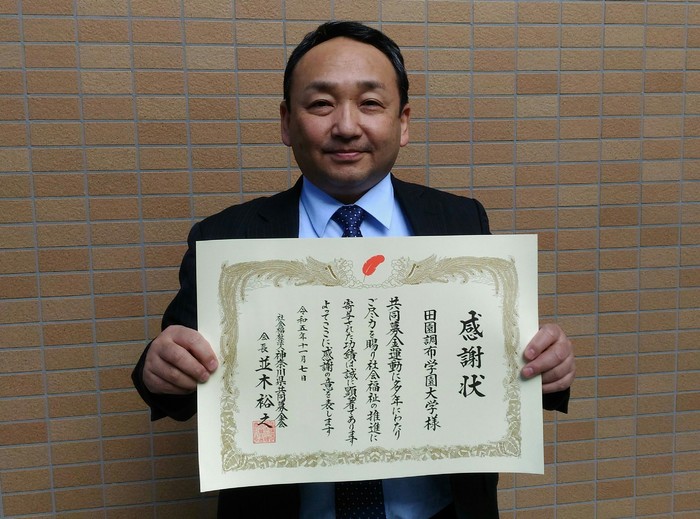 感謝状
田園調布学園大学様
共同募金運動に多年にわたり
ご尽力を賜り社会福祉の推進に
寄与された功績は誠に顕著であります
よってここに感謝の意を表します
令和五年十一月七日
社会福祉法人神奈川県共同募金会
会長 並木裕之